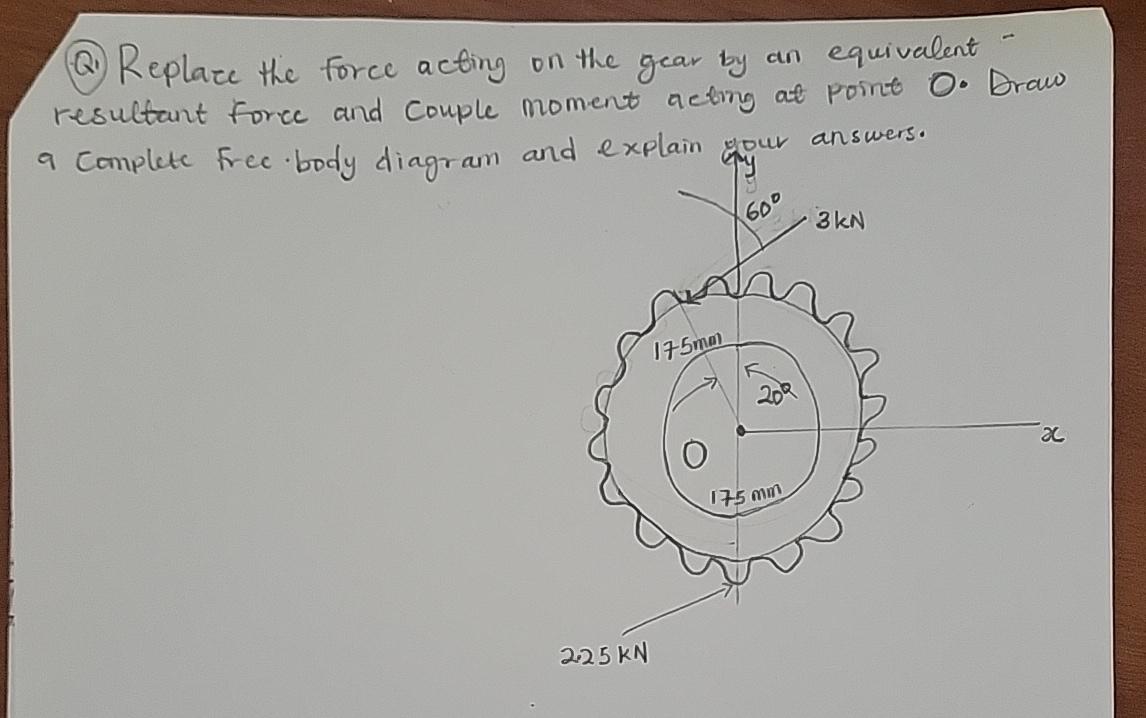 Q. Replace the force acting on the gear by an equivalent -
resultant force and Couple moment acting at point O. Draw
a Complete free-body diagram and explain your answers.
y
60°
3kN
175mm
20°
O
x
175mm
2.25kN